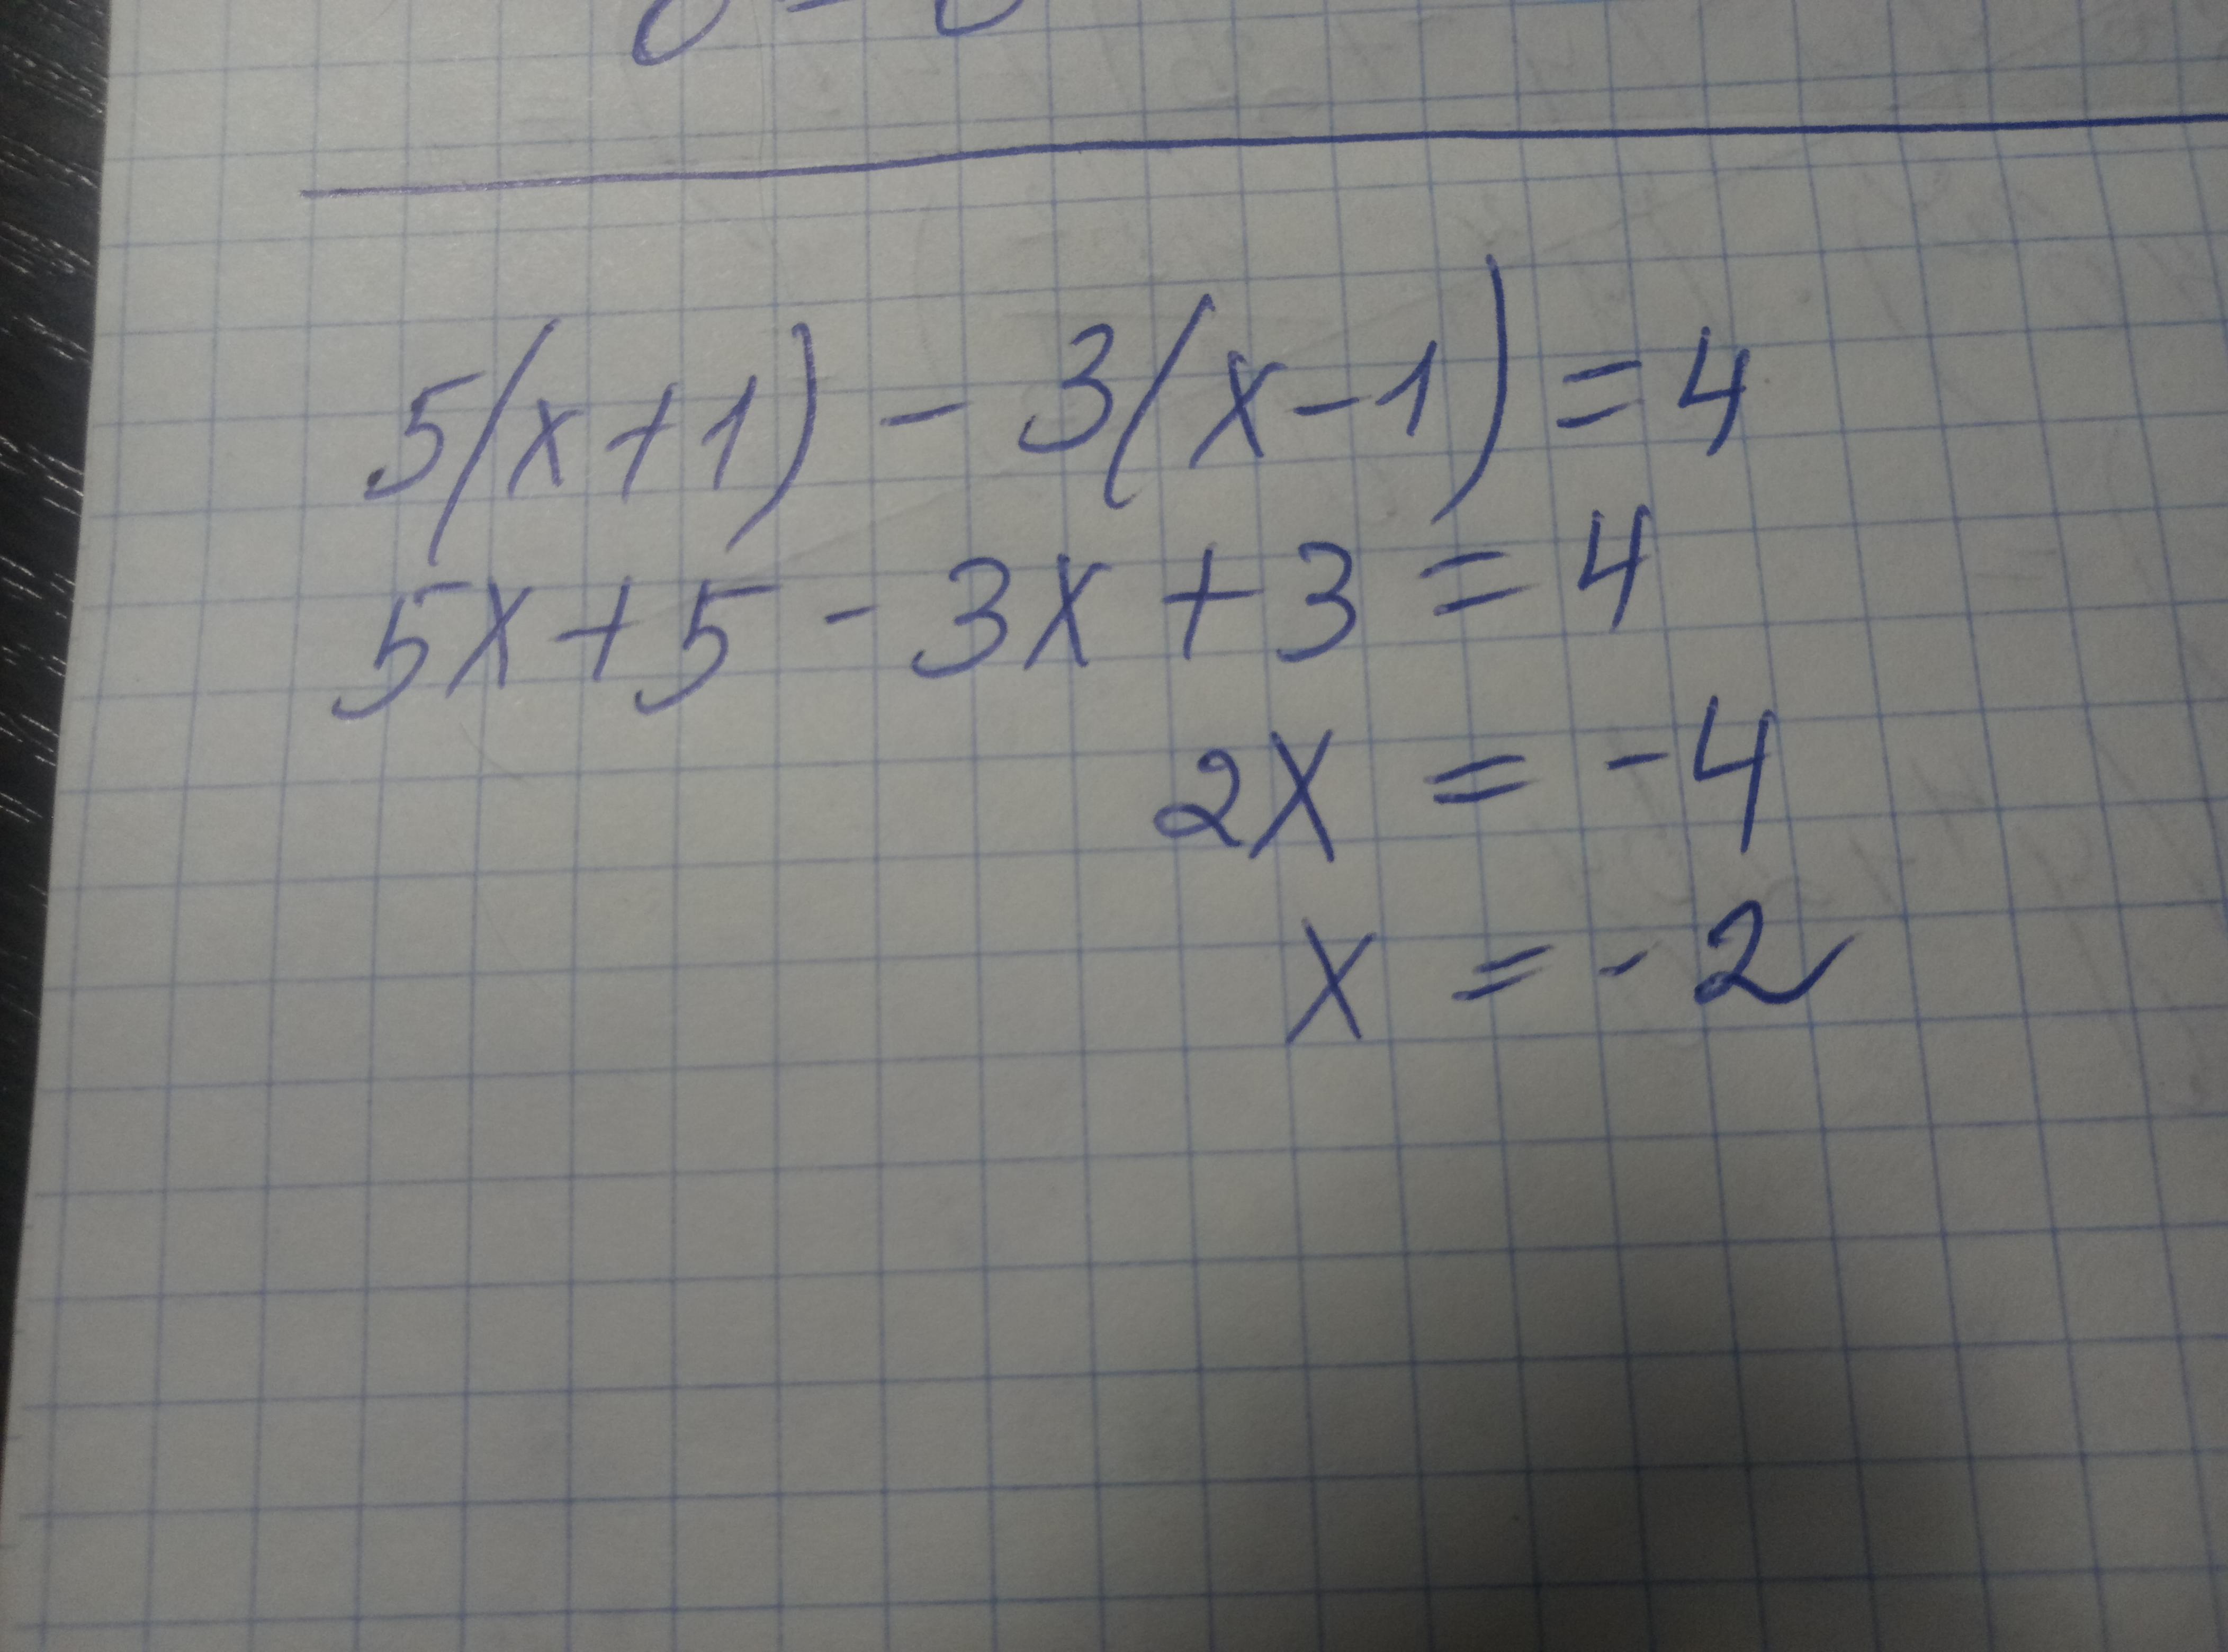 5(x+1) - 3(x-1) = 4
5x+5 - 3x + 3 = 4
2x = -4
x = -2